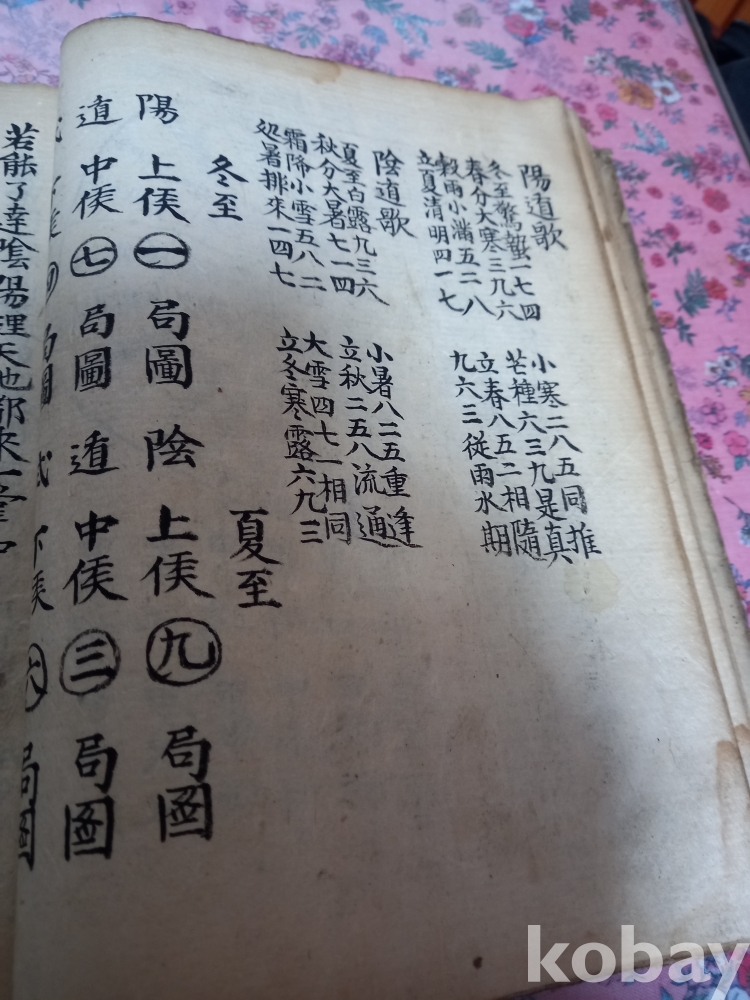 陽道歌
冬至驚蟄一七四
小寒二八五同推
春分大寒三九六
芒種六三九是真
穀雨小滿五二八
立春八五二相隨
立夏清明四一七
九六三従雨水期
陰道歌
夏至白露九三六
小暑八二五重逢
秋分大暑七一四
立秋二五八流通
霜降小雪五八二
大雪四七一相同
処暑排來一四七
立冬寒露六九三
冬至
夏至
陽上候一局圖陰上候九局圖
道中候七局圖道中候三局圖
下候四局圖式下候六局圖
若能了達陰陽理天也都來一
kobay